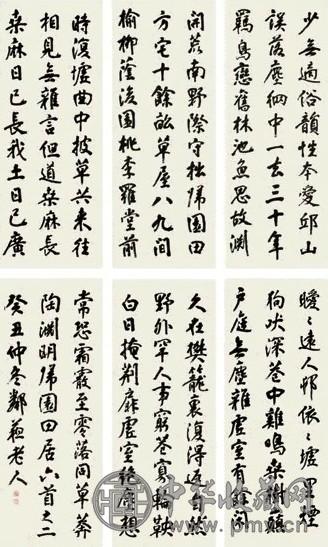 少無適俗韻性本愛邱山
誤落塵網中一去三十年
羈鳥戀舊林池魚思故淵
開荒南野際守拙歸園田
方宅十餘畝草屋八九間
榆柳蔭後園桃李羅堂前
時復墟曲中披草共來往
相見無雜言但道桑麻長
桑麻日已長我土日已廣
曖曖遠人邨依依墟里煙
狗吠深巷中雞鳴桑樹巔
戶庭無塵雜虛室有餘閒
久在樊籠裏復得返自然
野外罕人事窮巷寡輪鞅
白日掩荊扉虛室絕塵想
常恐霜霰至零落同草莽
陶淵明歸園田居六首之二
癸丑仲冬鄰蘇老人
中华收藏网